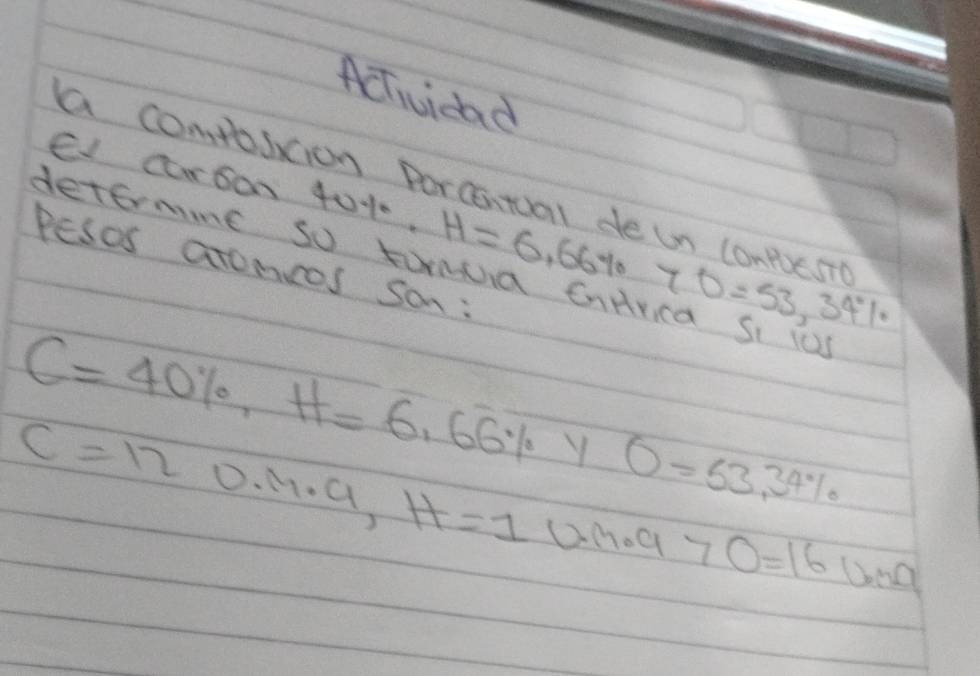 Actividad
la composicion Porcentual de un compuesto
es carbon 40%. H = 6,66% y O = 53,34%.
determine su formula Empirica si los
Pesos atomicos son:
C = 40%, H = 6,66% y O = 53,34%
C = 12 U.M.a, H = 1 U.M.a y O = 16 U.m.a